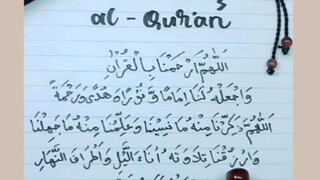 al-Qur'an
اَللّٰهُمَّ ارْحَمْنَا بِالْقُرْاٰنِ
وَاجْعَلْهُ لَنَا اِمَامًا وَّنُوْرًا وَّهُدًى وَّرَحْمَةً
اَللّٰهُمَّ ذَكِّرْنَا مِنْهُ مَا نَسِيْنَا وَعَلِّمْنَا مِنْهُ مَا جَهِلْنَا
وَارْزُقْنَا تِلَاوَتَهُ اٰنَاءَ اللَّيْلِ وَاَطْرَافَ النَّهَارِ